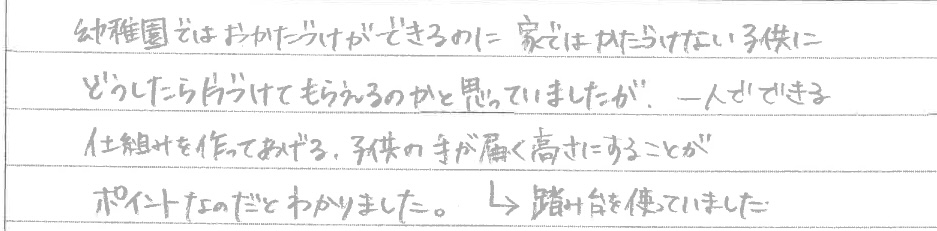 幼稚園ではおかたづけができるのに 家ではかたづけない子供に
どうしたら片づけてもらえるのかと思っていましたが、一人でできる
仕組みを作ってあげる、子供の手が届く高さにすることが
ポイントなのだとわかりました。 ↳ 踏み台を使っていました